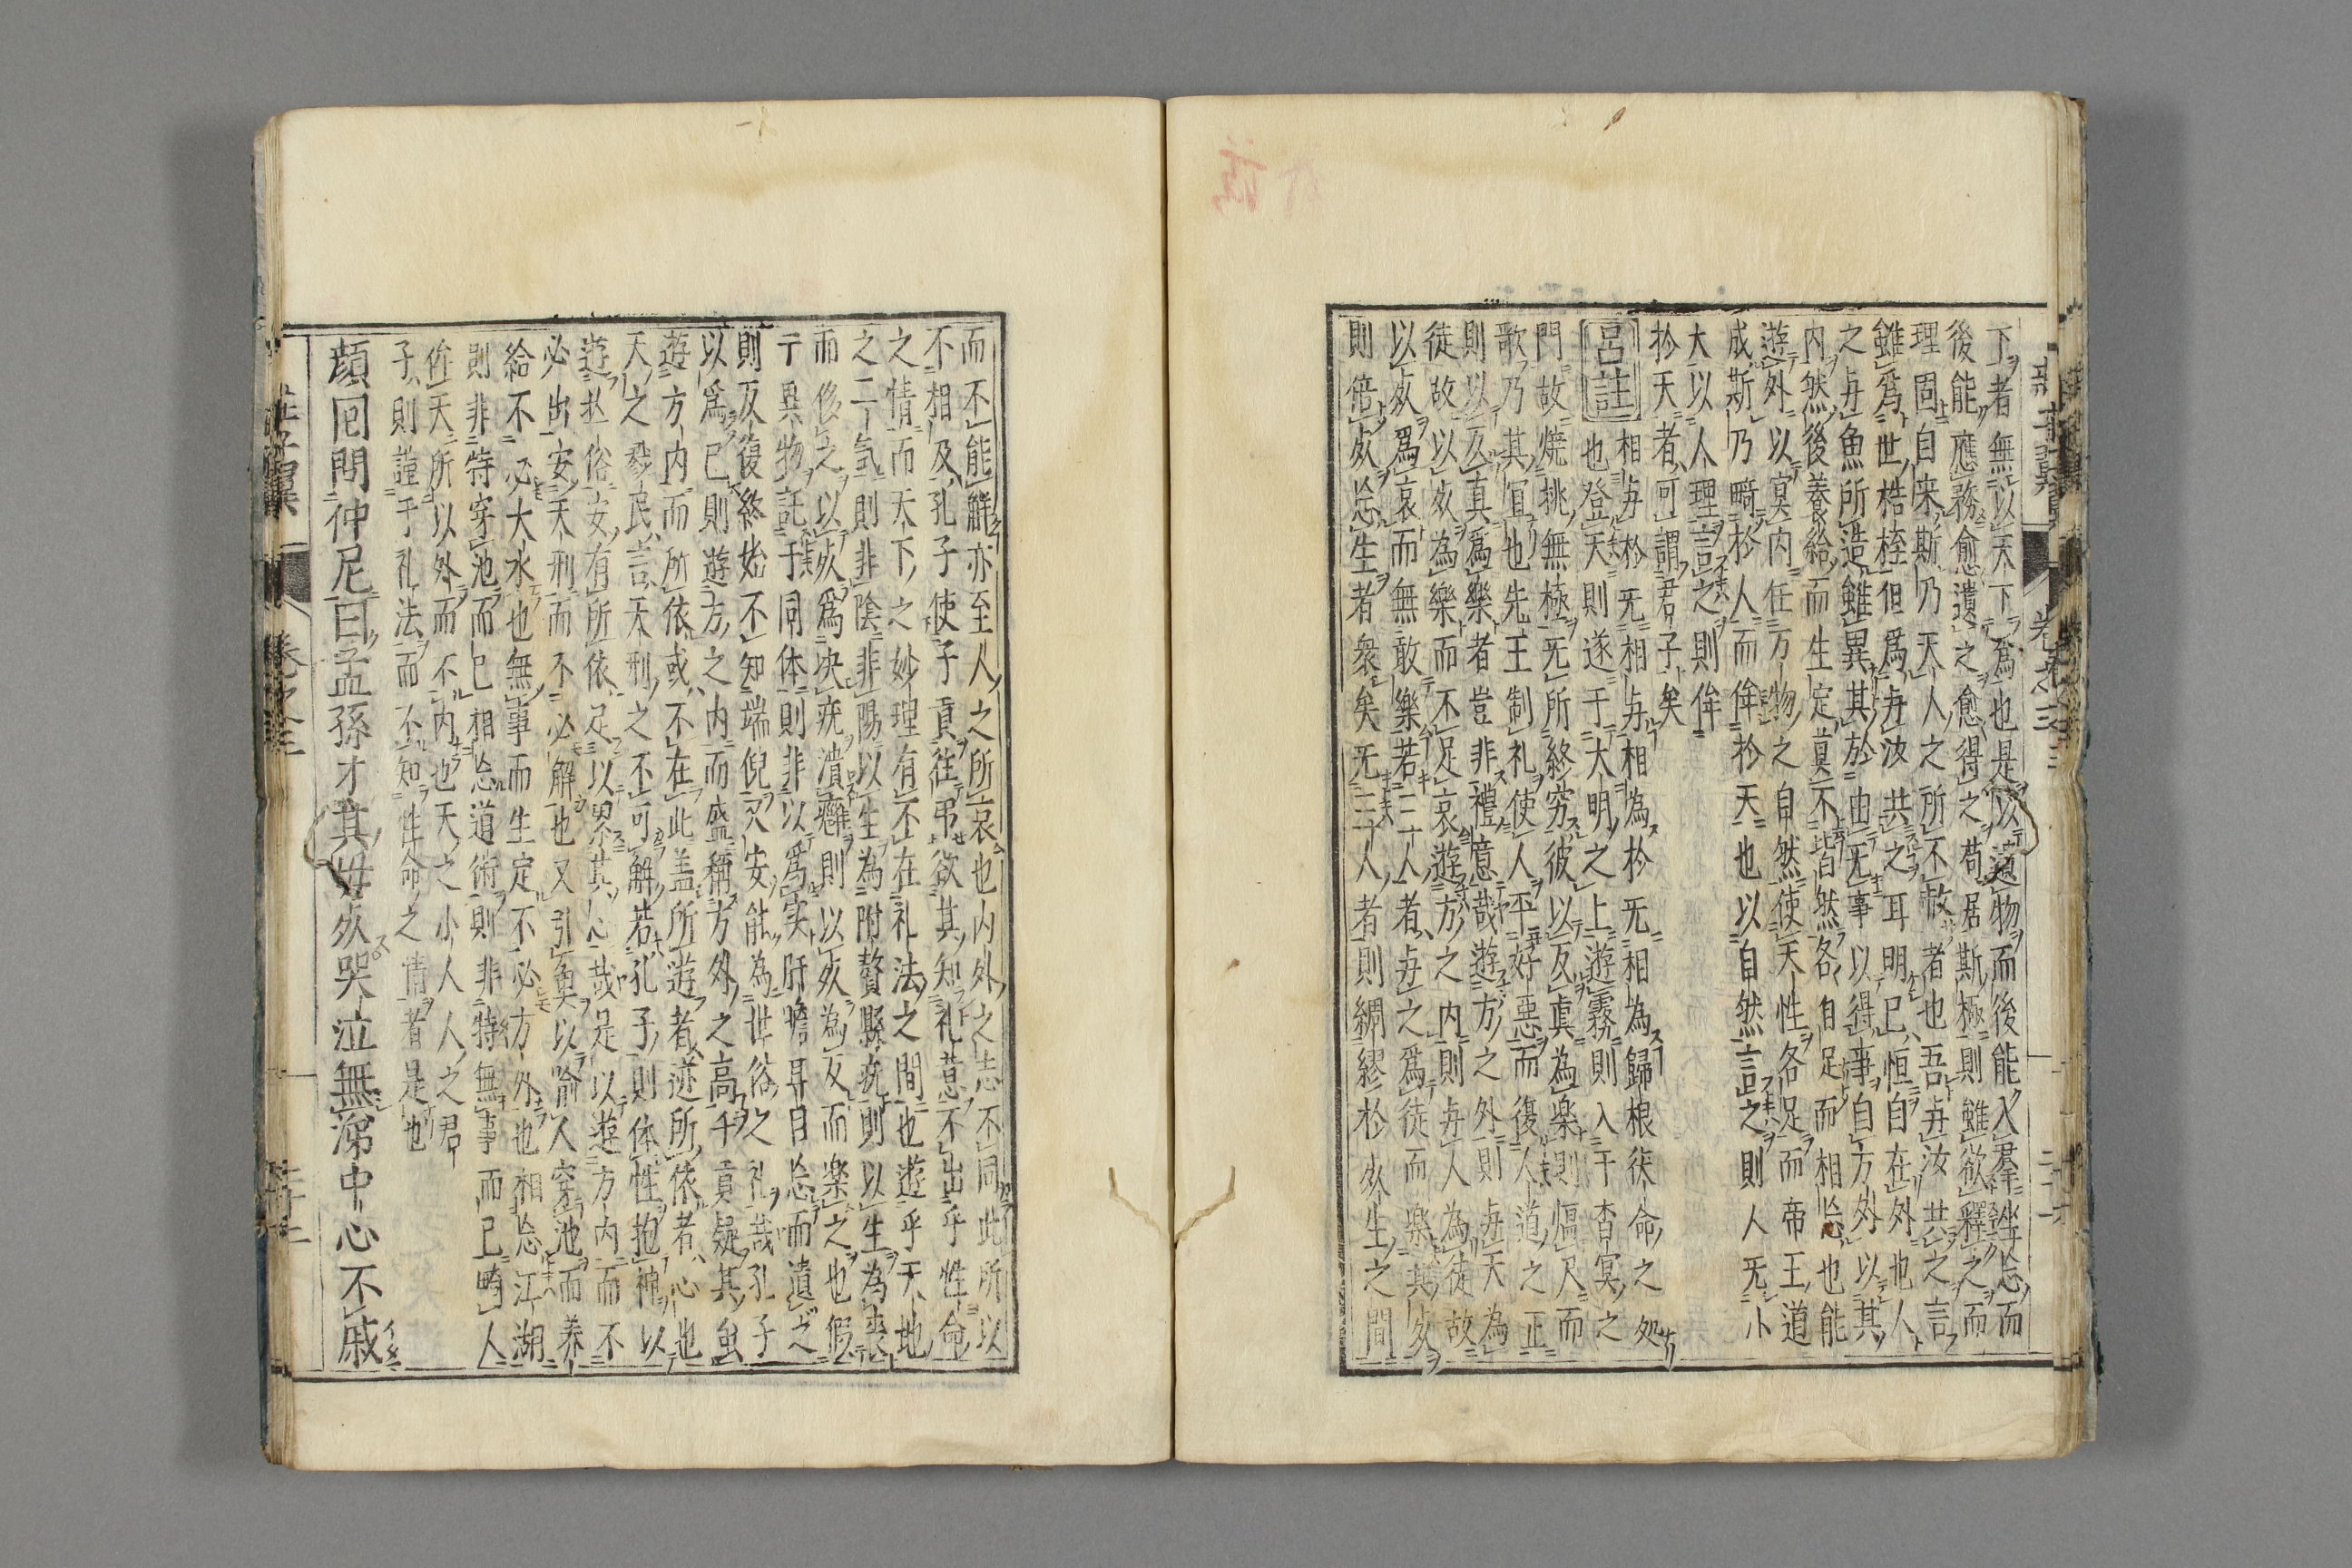 下者無以天下爲也是以遺物而後能入羣坐忘而
後能應務愈遺之愈得之苟居斯極則雖欲釋之而
理固自来斯乃天人之所不赦者也吾與汝共之言
雖爲世桎梏但爲與汝共之耳明已恒自在外也人
之與魚所造雖異其於由无事以得事自方外以其
内然後養給而生定莫不皆然各自足而相忘也能
遊外以冥内任万物之自然使天性各足而帝王道
成斯乃畸於人而侔於天也以自然言之則人无小
大以人理言之則侔
於天者可謂君子矣
呂註
相與於无相與相為於无相為歸根復命之処
也登天則遂于大明之上遊霧則入于杳冥之
門故撓挑無極无所終穷彼以反真為楽則愠尺而
歌乃其宜也先王制礼使人平好惡而復人道之正
則以反真爲樂者豈非禮意哉遊方之外則與天為
徒故以死為樂而不足哀遊方之内則與人為徒故
以死爲哀而無敢樂若三人者與之爲徒而楽其死
則倍死忘生者衆矣无三人者則綢繆於死生之間
而不能解亦至人之所哀也内外之志不同此所以
不相及孔子使子貢往弔欲其知礼意不出乎性命
之情而天下之妙理有不在礼法之間也遊乎天地
之一氣則非陰非陽以生為附贅縣疣則以生為喪
而侈之以死爲决疣潰癰則以死為反而楽之也假
于異物託于同体則非以爲実肝膽耳目忘而遺之
則反復終始不知端倪又安能為世俗之礼哉孔子
以爲已則遊方之内而盛稱方外之高子貢疑其虽
遊方内而所依或不在此盖所遊者迹所依者心也
天之戮民言天刑之不可解若孔子則体性抱神以
遊於俗安有所依足以累其心哉是以遊方内而不
必出安天刑而不必解也又引魚以喻人穿池而养
給不必大水也無事而生定不必方外也相忘江湖
則非特穿池而已相忘道術則非特無事而已畸人
侔天所以外而不内也天之小人人之君
子則謹于礼法而不知性命之情者是也
顔囘問仲尼曰孟孫才其母死哭泣無涕中心不戚